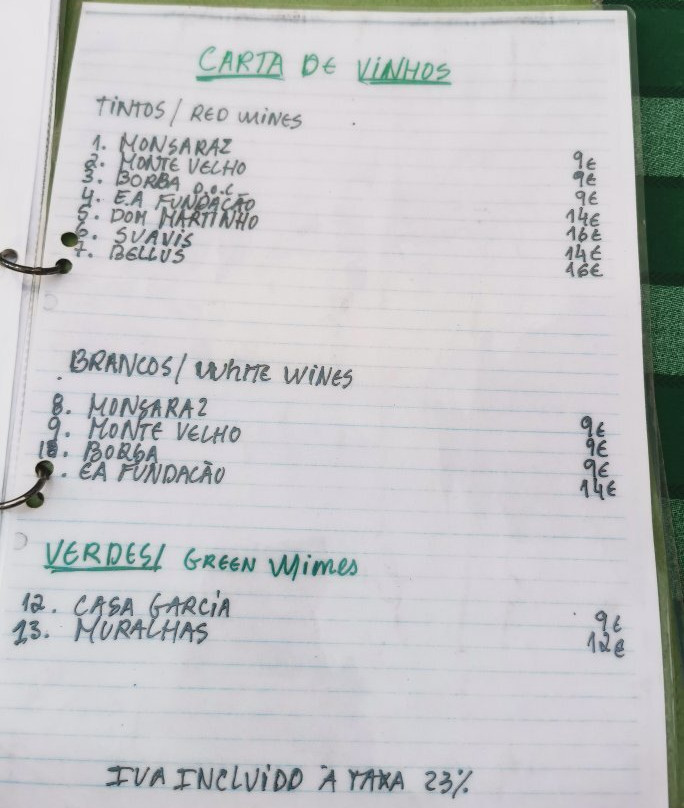 CARTA DE VINHOS
TINTOS / RED WINES
1. MONSARAZ 9€
2. MONTE VELHO 9€
3. BORBA D.O.C 9€
4. E.A FUNDAÇÃO 14€
5. DOM MARTINHO 16€
6. SUAVIS 14€
7. BELLUS 16€
BRANCOS / WHITE WINES
8. MONSARAZ 9€
9. MONTE VELHO 9€
10. BORBA 9€
. EA FUNDAÇÃO 14€
VERDES/ GREEN Wimes
12. CASA GARCIA 9€
13. MURALHAS 12€
IVA INCLUIDO À TAXA 23%